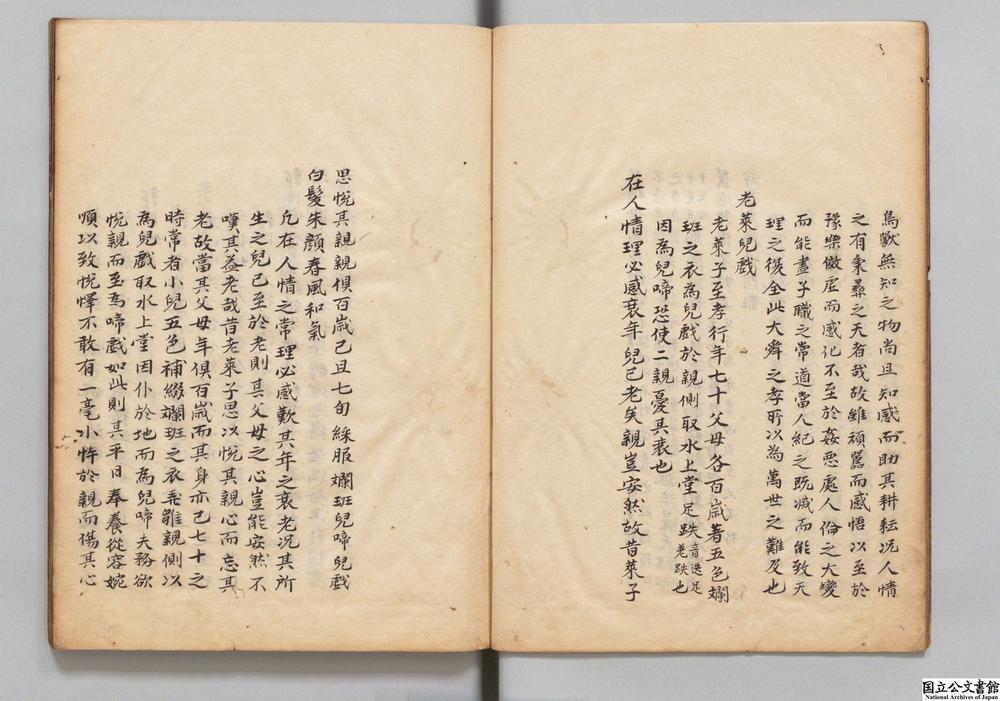 鳥獸無知之物尚且知感而助其耕耘况人情
之有秉彝之天者哉故雖頑嚚而感悟以至於
豫樂傲虐而感化不至於姦惡處人倫之大變
而能盡子職之常道當人紀之既滅而能致天
理之復全此大舜之孝所以為萬世之難及也
老萊兒戲
老萊子至孝行年七十父母各百歲著五色斕
班之衣為兒戲於親側取水上堂足跌音迭足老跌也
因為兒啼恐使二親憂其衰也
在人情理必感衰年兒已老矣親豈安然故昔萊子
思悅其親親俱百歲已且七旬綵服斕班兒啼兒戲
白髮朱顏春風和氣
凡在人情之常理必感歎其年之衰老况其所
生之兒已至於老則其父母之心豈能安然不
嘆其益老哉昔老萊子思以悅其親心而忘其
老故當其父母年俱百歲而其身亦已七十之
時常着小兒五色補綴斕班之衣弄雛親側以
為兒戲取水上堂因仆於地而為兒啼夫務欲
悅親而至為啼戲如此則其平日奉養從容婉
順以致悅懌不敢有一毫小忤於親而傷其心
国立公文書館
National Archives of Japan